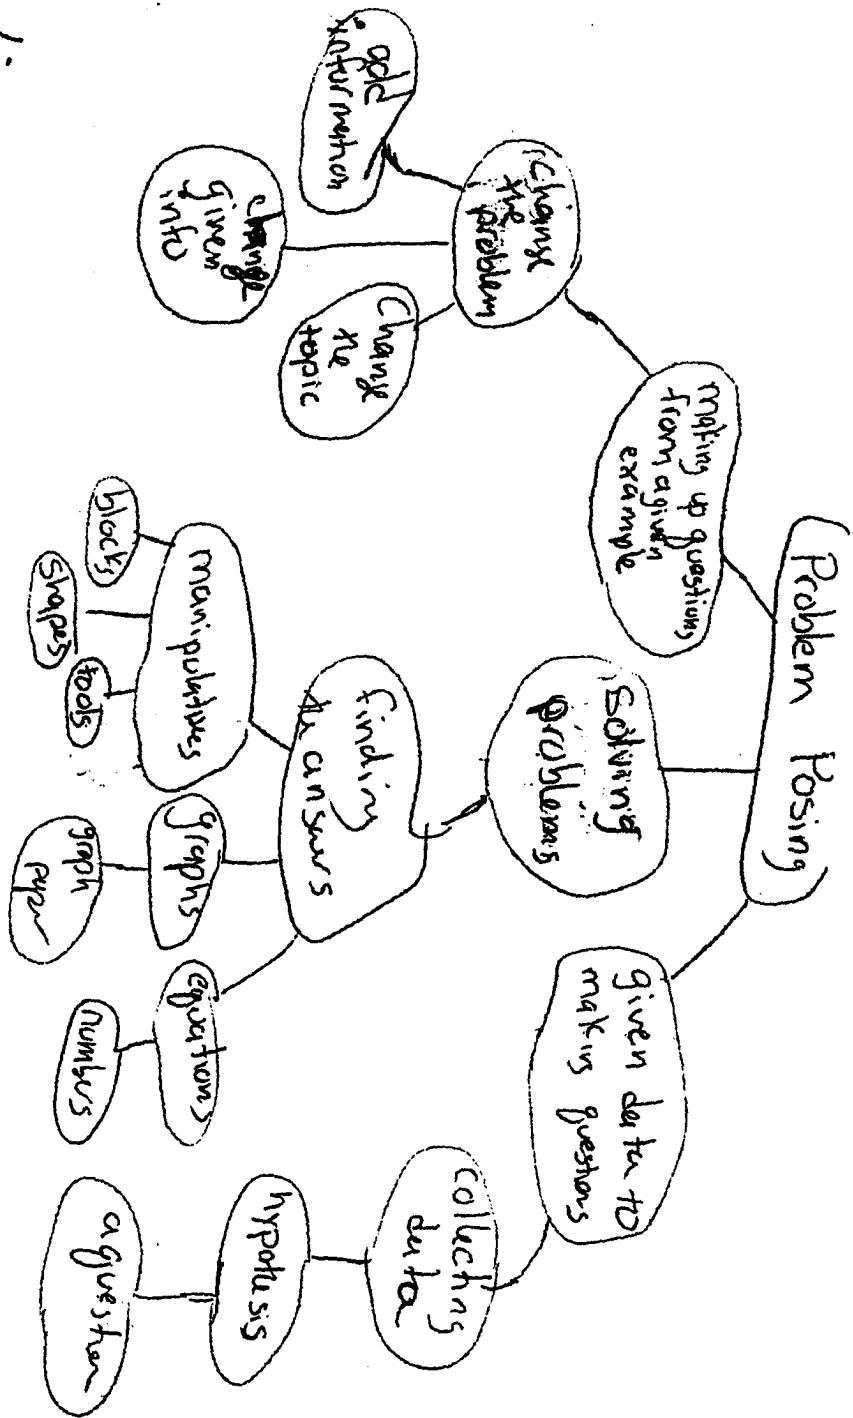 Problem Posing
making up questions
from a given
example
Change
the
problem
add
information
change
given
info
Change
the
topic
Solving
problems
finding
the answers
manipulatives
blocks
shapes
tools
graphs
graph
paper
equations
numbers
given data to
making questions
Collecting
data
hypothesis
a question